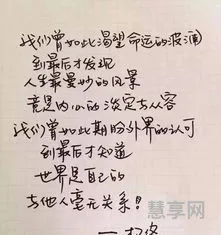 我们曾如此渴望命运的波澜
到最后才发现
人生最曼妙的风景
竟是内心的淡定与从容
我们曾如此期盼外界的认可
到最后才知道
世界是自己的
与他人毫无关系！
——杨绛
慧享网